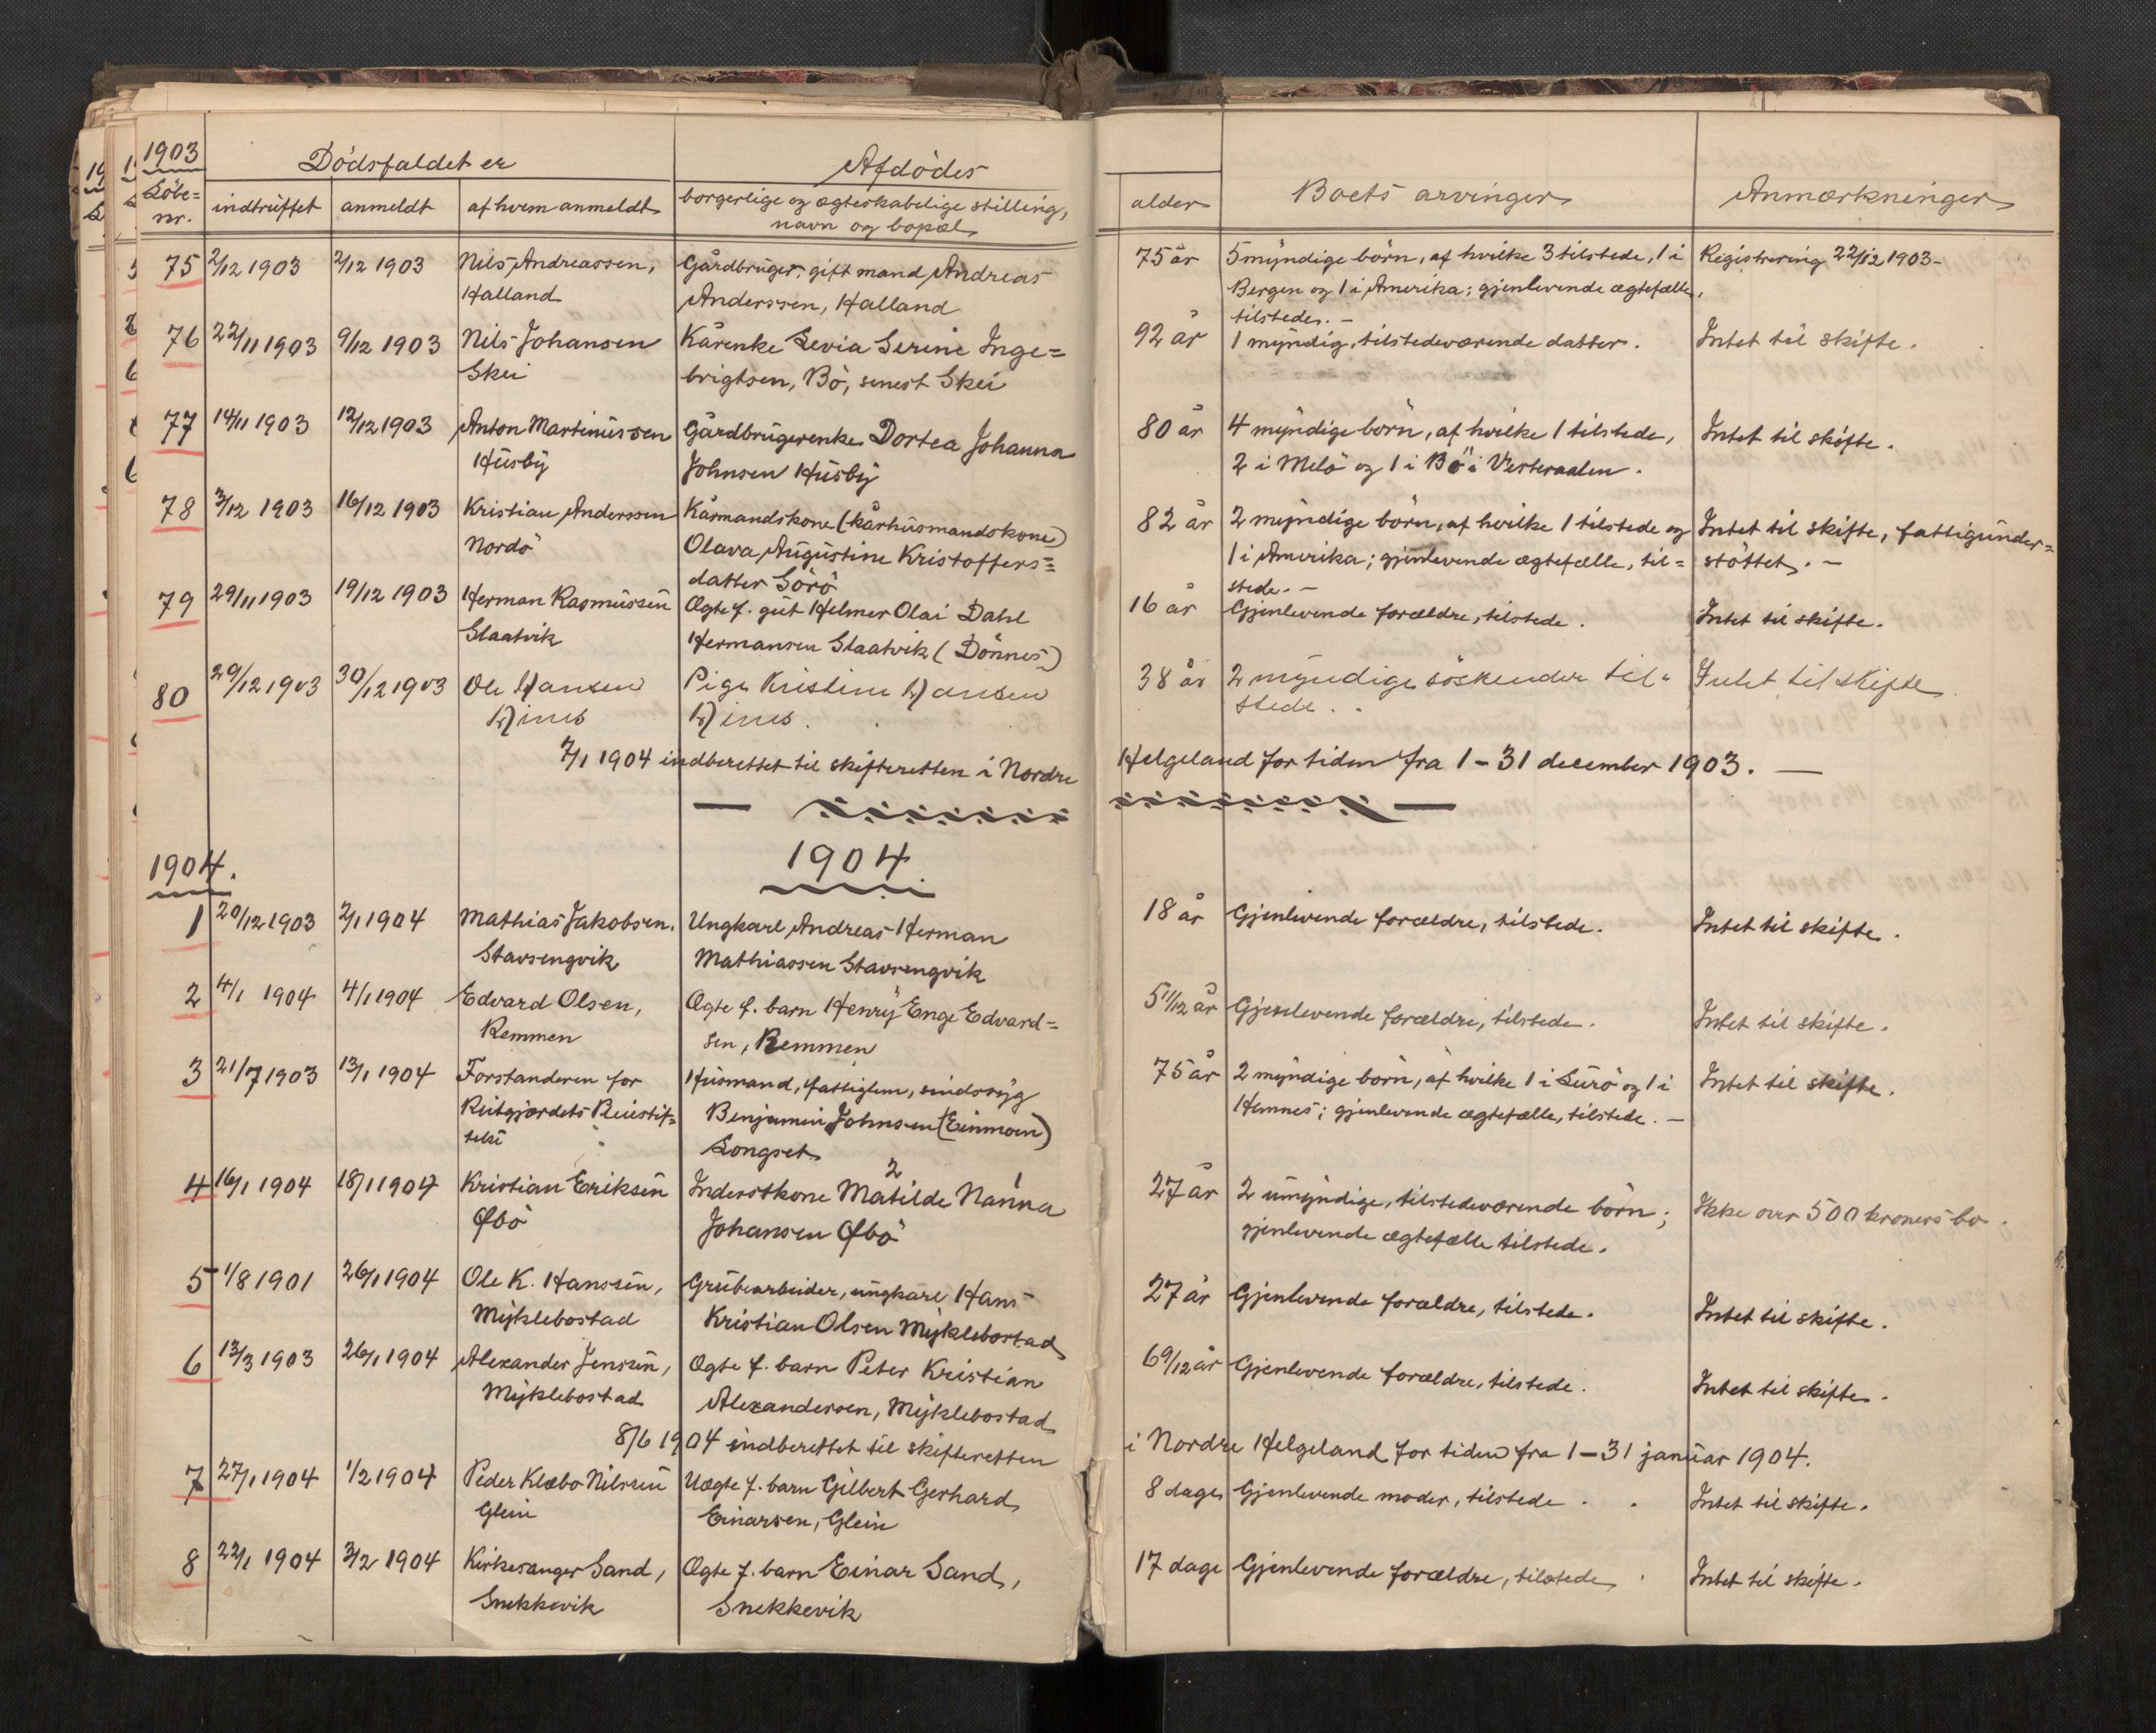 1903
Dödsfaldet er
Afdödes
Löbe=
nr.
indtruffet
anmeldt
af hvem anmeldt
borgerlige og ægteskabelige stilling,
navn og bopæl
alder
Boets arvinger
Anmærkninger
75 2/12 1903 2/12 1903 Nils Andreassen, Gårdbruger, gift mand Andreas 75 år 5 myndige börn, af hvilke 3 tilstede, 1 i Registrering 22/12 1903-
Halland Anderssen, Halland Bergen og 1 i Amerika; gjenlevende ægtefælle,
tilstede. -
76 22/11 1903 9/12 1903 Nils Johansen Kårenke Levia Serine Inge= 92 år 1 myndig, tilstedeværende datter. Intet til skifte.
Skei brigtsen, Bö, senest Skei
77 14/11 1903 12/12 1903 Anton Martinussen Gårdbrugerenke Dortea Johanna 80 år 4 myndige börn, af hvilke 1 tilstede, Intet til skifte.
Husby Johnsen Husby 2 i Melö og 1 i Bö i Vesteraalen.
78 3/12 1903 16/12 1903 Kristian Anderssen Kårmandskone (kårhusmandskone) 82 år 2 myndige börn, af hvilke 1 tilstede og Intet til skifte, fattigunder=
Nordö Olava Augustine Kristoffers= 1 i Amerika; gjenlevende ægtefælle, til= stöttet. -
datter Sörö stede. -
79 29/11 1903 19/12 1903 Herman Rasmussen Ægte f. gut Helmer Olai Dahl 16 år Gjenlevende forældre, tilstede. Intet til skifte.
Slaatvik Hermansen Slaatvik (Dönnes)
80 29/12 1903 30/12 1903 Ole Hansen Pige Kristine Hansen 38 år 2 myndige söskender til= Intet til skifte
Hinus Hinus. stede.
7/1 1904 indberettet til skifteretten i Nordre Helgeland for tiden fra 1-31 december 1903. -
1904.
1904
1 20/12 1903 2/1 1904 Mathias Jakobsen. Ungkarl Andreas Herman 18 år Gjenlevende forældre, tilstede. Intet til skifte.
Stavsengvik Mathiassen Stavsengvik
2 4/1 1904 4/1 1904 Edvard Olsen, Ægte f. barn Henry Enge Edvard= 5 11/12 år Gjenlevende forældre, tilstede. Intet til skifte.
Remmen sen, Remmen
3 21/7 1903 13/1 1904 Forstanderen for Husmand, fattiglem, sindssyg 75 år 2 myndige börn, af hvilke 1 i Lurö og 1 i Intet til skifte.
Reitgjærdets Pleiestif= Benjamin Johnsen (Einmoen) Hemnes; gjenlevende ægtefælle, tilstede. -
telse Longset
4 16/1 1904 18/1 1904 Kristian Eriksen Inderstkone Matilde 2 Nanna 1 27 år 2 umyndige, tilstedeværende börn; Ikke over 500 kroners bo.
Øbö Johansen Øbö gjenlevende ægtefælle tilstede.
5 1/8 1901 26/1 1904 Ole K. Hanssen, Grubearbeider, ungkarl Hans 27 år Gjenlevende forældre, tilstede. Intet til skifte.
Myklebostad Kristian Olsen Myklebostad
6 13/3 1903 26/1 1904 Alexander Jenssen, Ægte f. barn Peter Kristian 6 9/12 år Gjenlevende forældre, tilstede. Intet til skifte.
Myklebostad Alexandersen, Myklebostad
8/6 1904 indberettet til skifteretten i Nordre Helgeland for tiden fra 1-31 januar 1904.
7 27/1 1904 1/2 1904 Peder Klæbo Nilssen Uægte f. barn Gilbert Gerhard 8 dage Gjenlevende moder, tilstede. Intet til skifte.
Glein Einarsen, Glein
8 22/1 1904 3/2 1904 Kirkesanger Sand, Ægte f. barn Einar Sand, 17 dage Gjenlevende forældre, tilstede. Intet til skifte.
Snekkevik Snekkevik